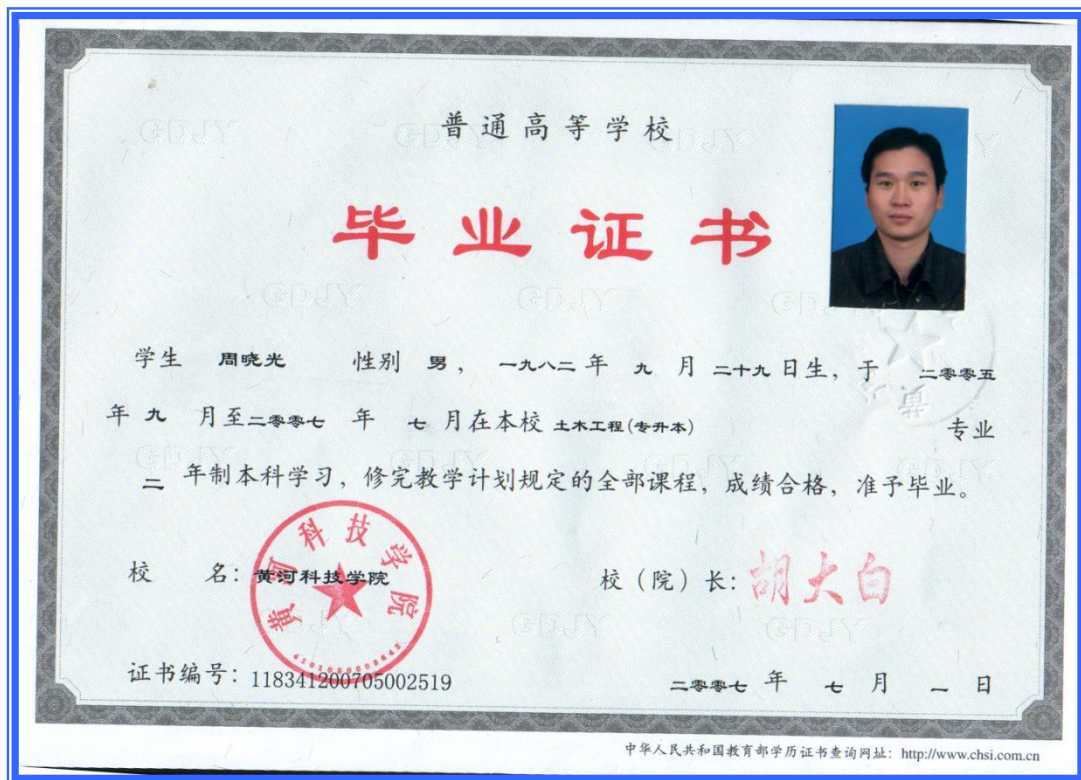 普通高等学校
毕业证书
学生 周晓光 性别 男, 一九八二 年 九 月 二十九 日生, 于 二零零五
年 九 月至 二零零七 年 七 月在本校 土木工程(专升本) 专业
二 年制本科学习, 修完教学计划规定的全部课程, 成绩合格, 准予毕业。
黄河科技学院
校 名: 黄河科技学院 校(院)长: 胡大白
证书编号: 118341200705002519 二零零七 年 七 月 一 日
中华人民共和国教育部学历证书查询网址: http://www.chsi.com.cn